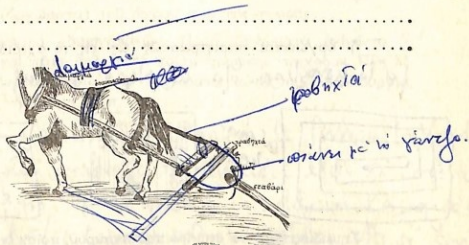 λαιμαργιά
τραβηχτά
τραβηχτά
πιάνει με το γάντζο.
σταβάρι